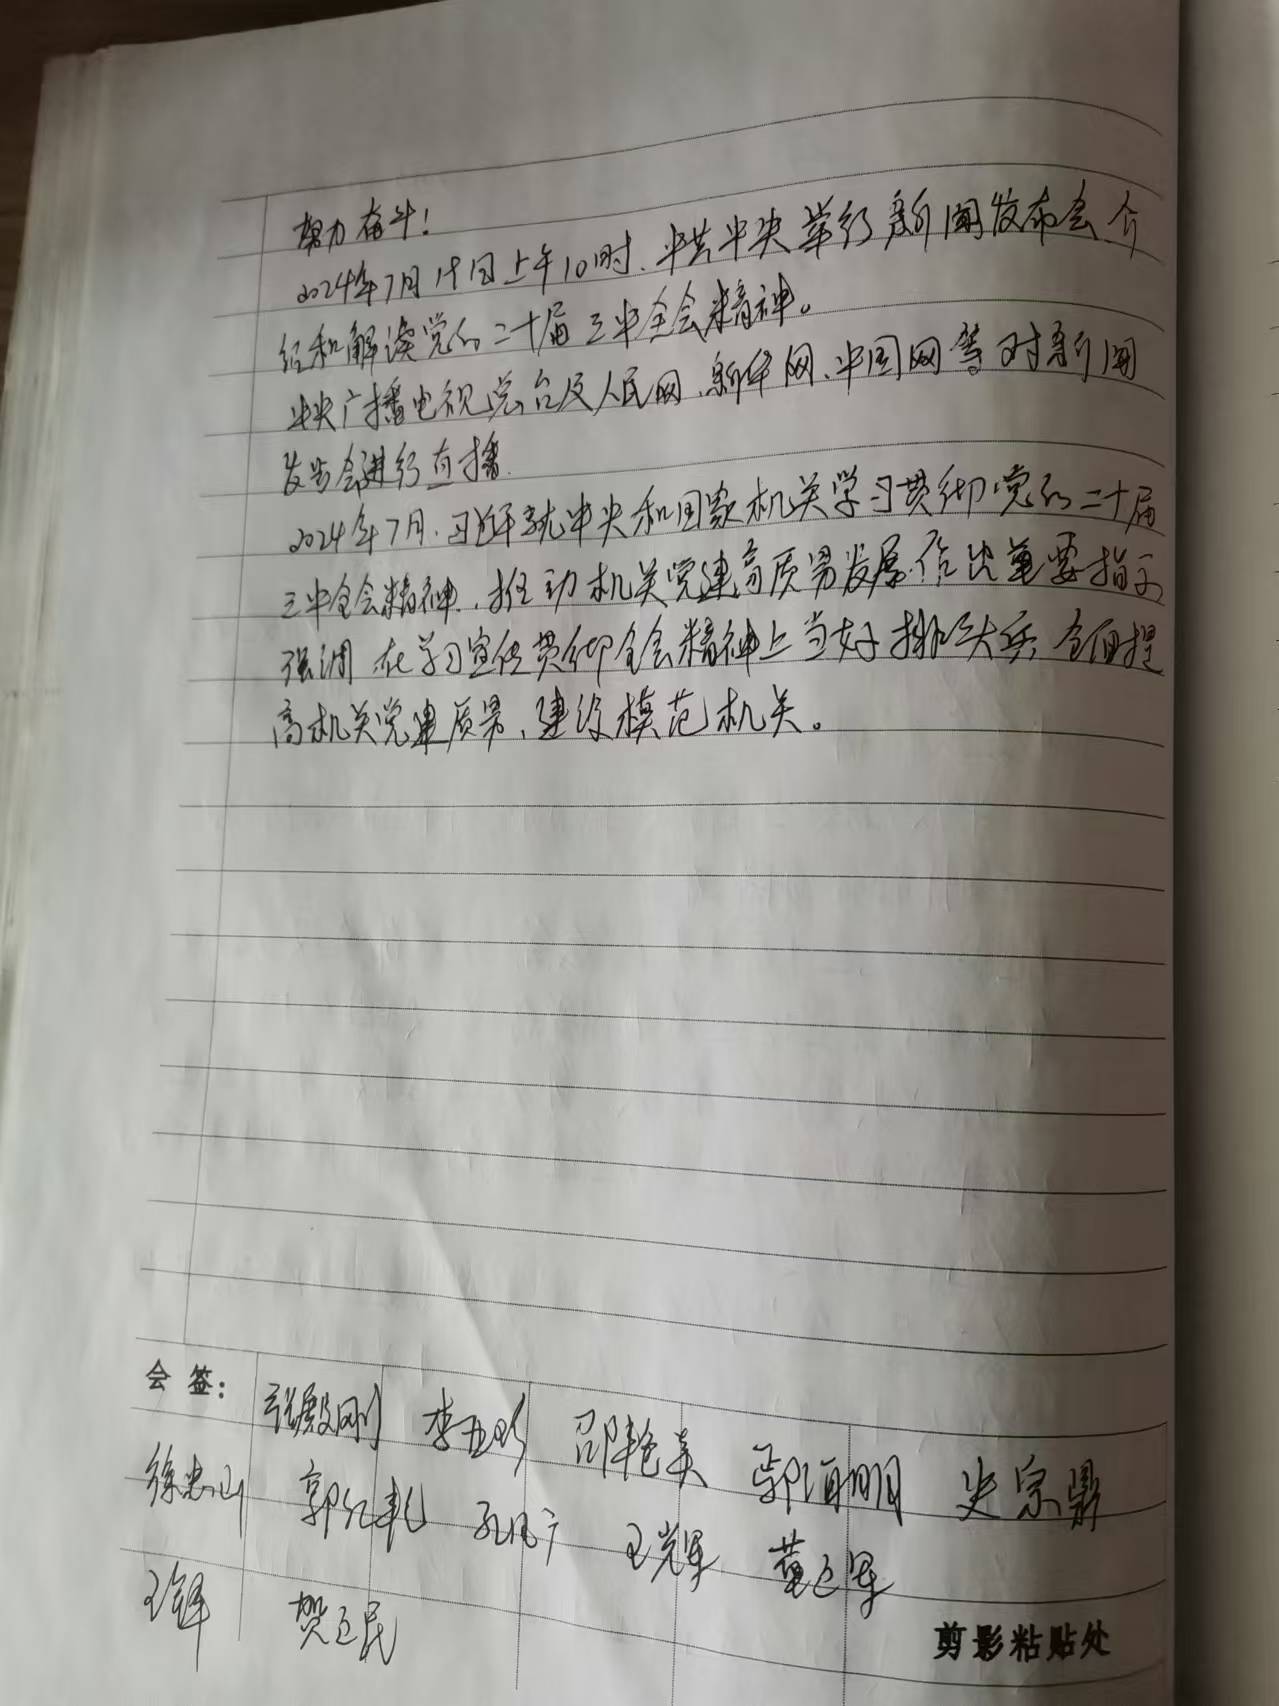 努力奋斗！
2024年7月19日上午10时、中共中央举行新闻发布会介
绍和解读党的二十届三中全会精神。
中央广播电视总台及人民网、新华网、中国网等对新闻
发布会进行直播.
2024年7月.习近平就中央和国家机关学习贯彻党的二十届
三中全会精神、推动机关党建高质量发展作出重要指示
强调 在学习宣传贯彻全会精神上当好排头兵 全面提
高机关党建质量、建设模范机关。
会 签：
张殿刚 李 邵艳英 明 史宗鼎
徐忠山 郭红艳 孔凡广 王光军 董卫军
王锋 贺立民
剪影粘贴处